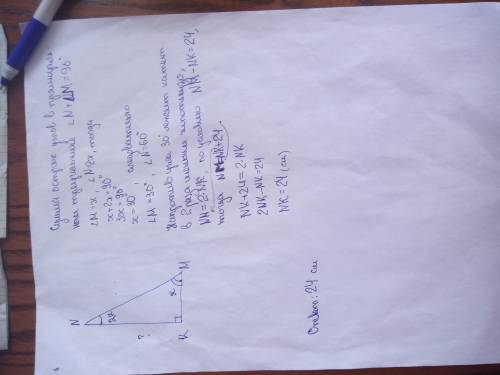 N
2x
?
x
K
M
Сумма острых углов в прямоуголь
ном треугольнике ∠N+∠M=90°
∠M=x, ∠N=2x, тогда
x+2x=90°
3x=90°
x=30°, следовательно
∠M=30°, ∠N=60°
Напротив угла 30° лежит катет
в 2 раза меньше гипотенузы,
NM=2·NK, по условию NM-NK=24,
тогда NM=NK+24.
NK+24=2·NK
2NK-NK=24
NK=24 (см)
Ответ: 24 см